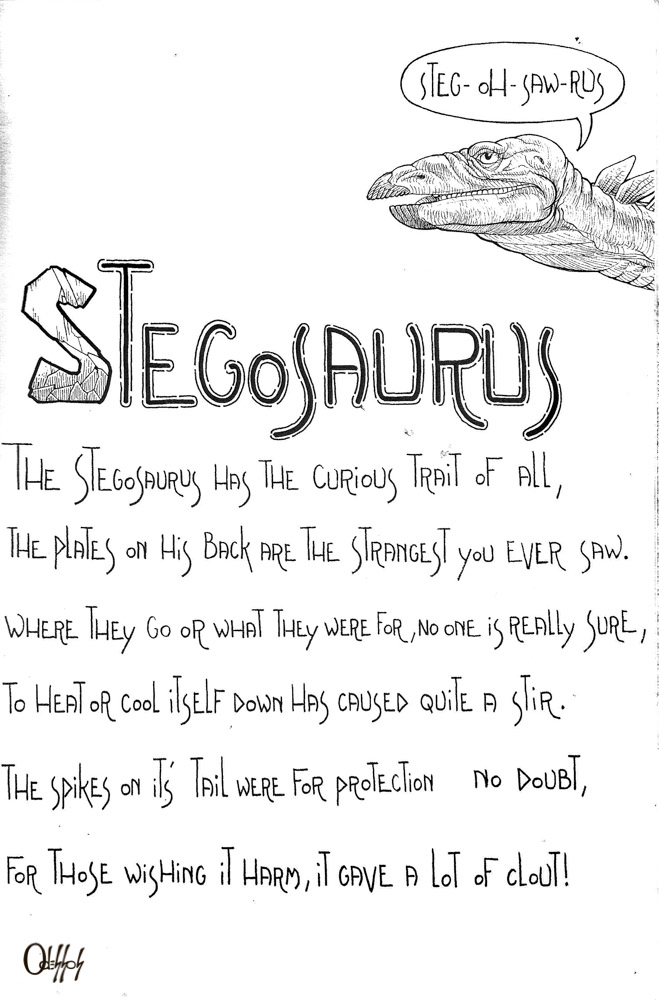 STEG-OH-SAW-RUS
STEGOSAURUS
THE STEGOSAURUS HAS THE CURIOUS TRAIT OF ALL,
THE PLATES ON HIS BACK ARE THE STRANGEST YOU EVER SAW.
WHERE THEY GO OR WHAT THEY WERE FOR, NO ONE IS REALLY SURE,
TO HEAT OR COOL ITSELF DOWN HAS CAUSED QUITE A STIR.
THE SPIKES ON ITS' TAIL WERE FOR PROTECTION NO DOUBT,
FOR THOSE WISHING IT HARM, IT GAVE A LOT OF CLOUT!